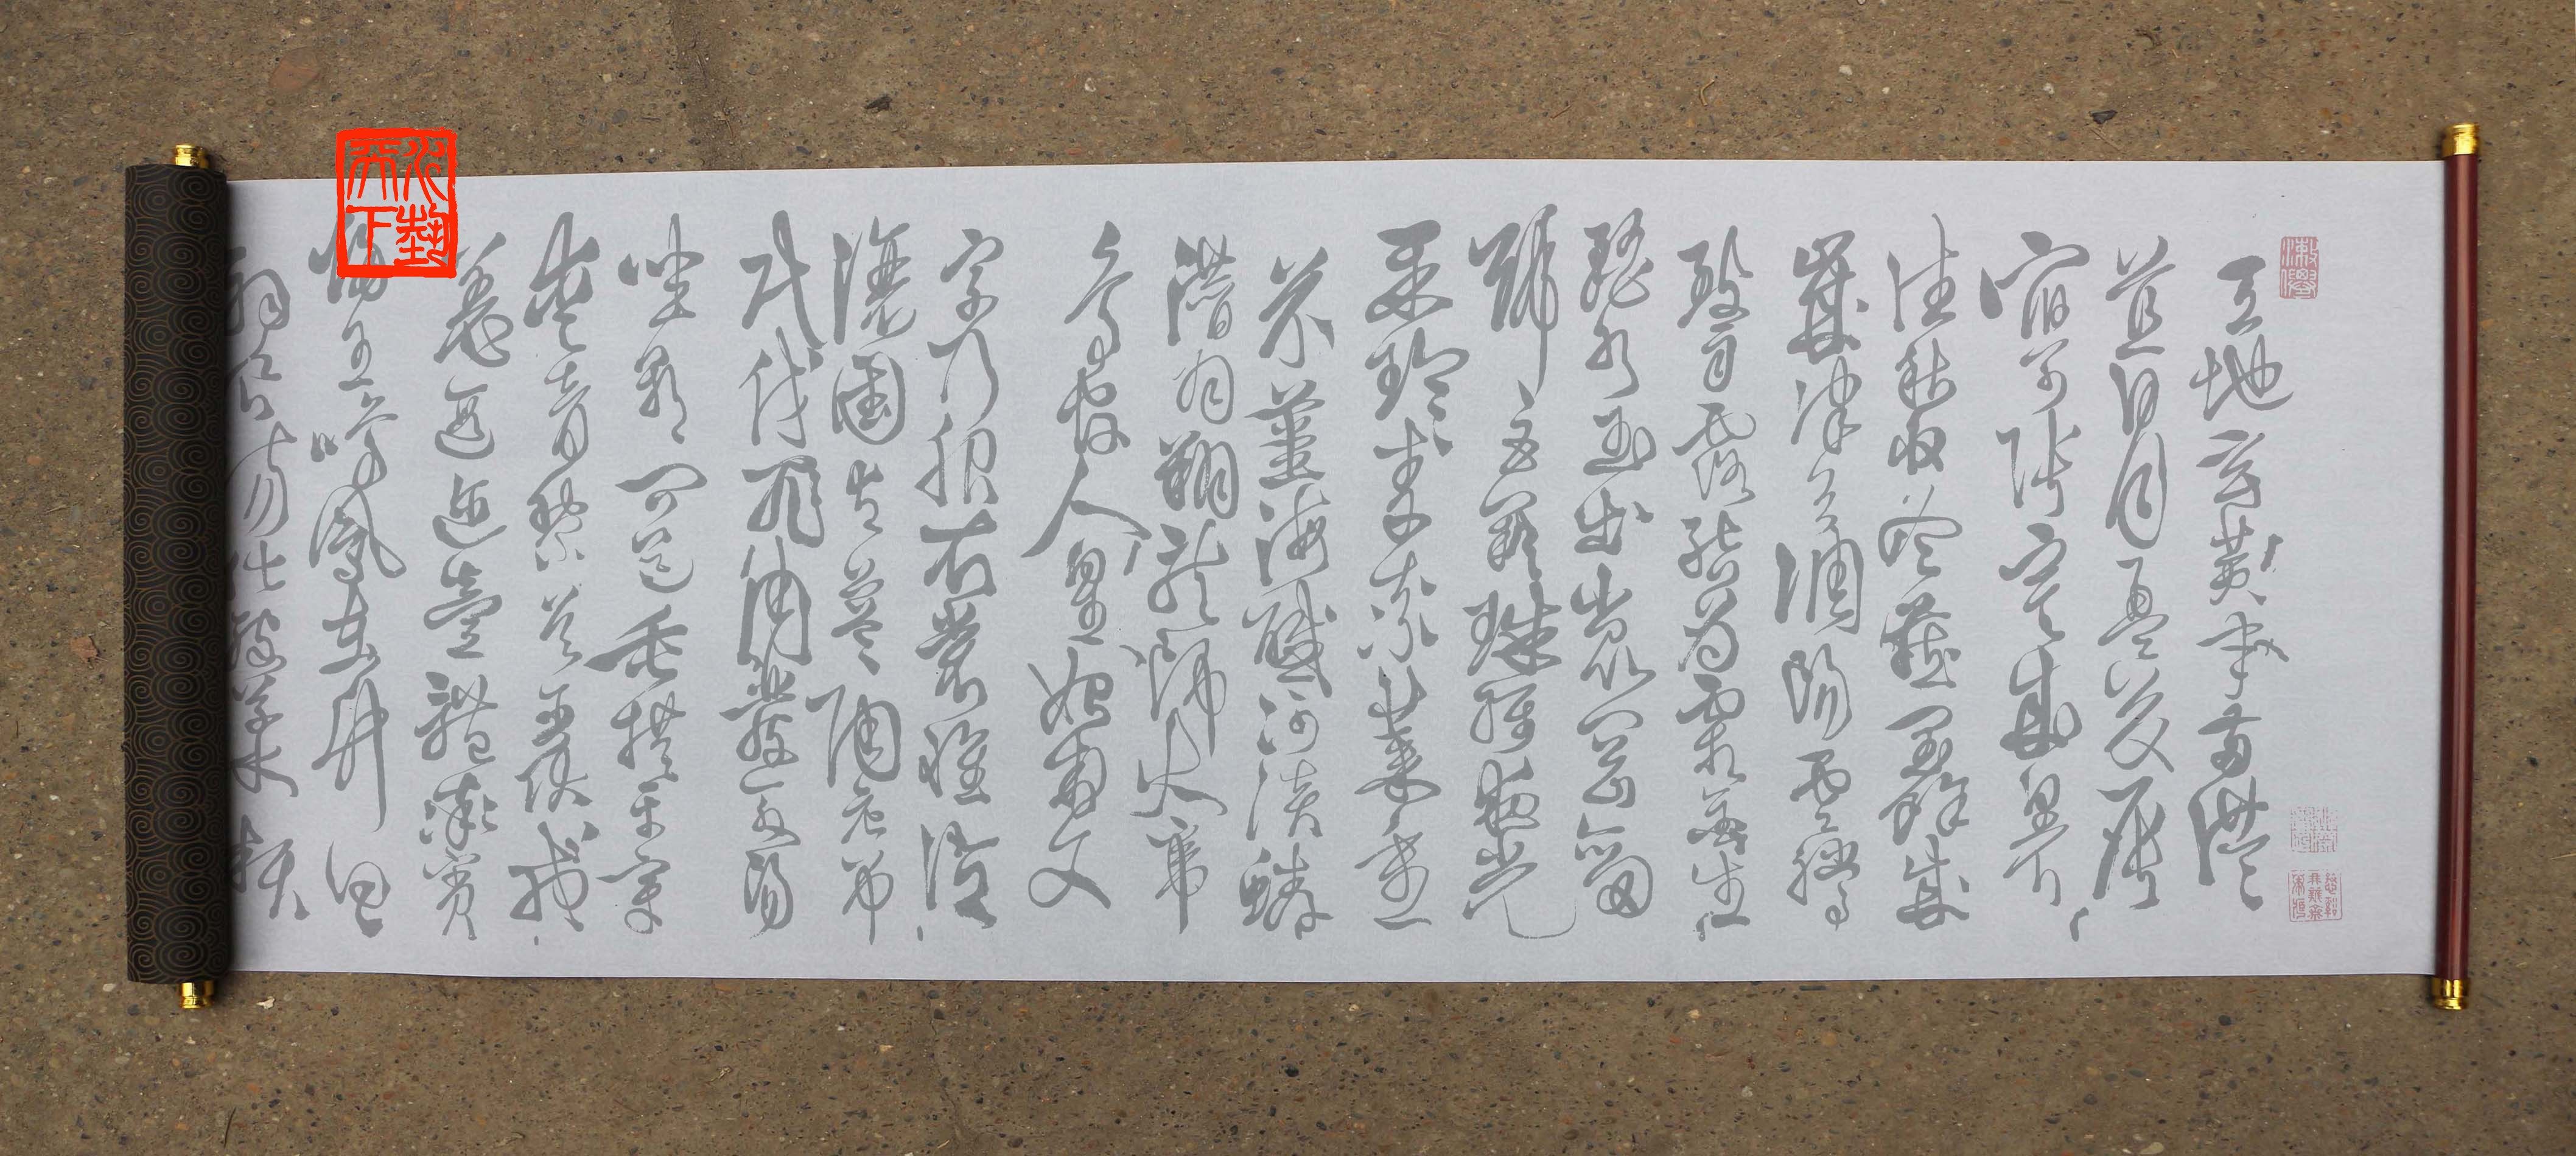 天地玄黃宇宙洪
荒日月盈昃辰
宿列張寒來暑
往秋收冬藏閏餘成
歲律呂調陽雲騰
致雨露結為霜金生
麗水玉出崑岡劍
號巨闕珠稱夜光
果珍李柰菜重
芥薑海鹹河淡鱗
潛羽翔龍師火帝
鳥官人皇始制文
字乃服衣裳推位
讓國有虞陶唐弔
民伐罪周發殷湯
坐朝問道垂拱平章
愛育黎首臣伏戎
羌遐邇壹體率賓
歸王鳴鳳在竹白
駒食場化被草木賴